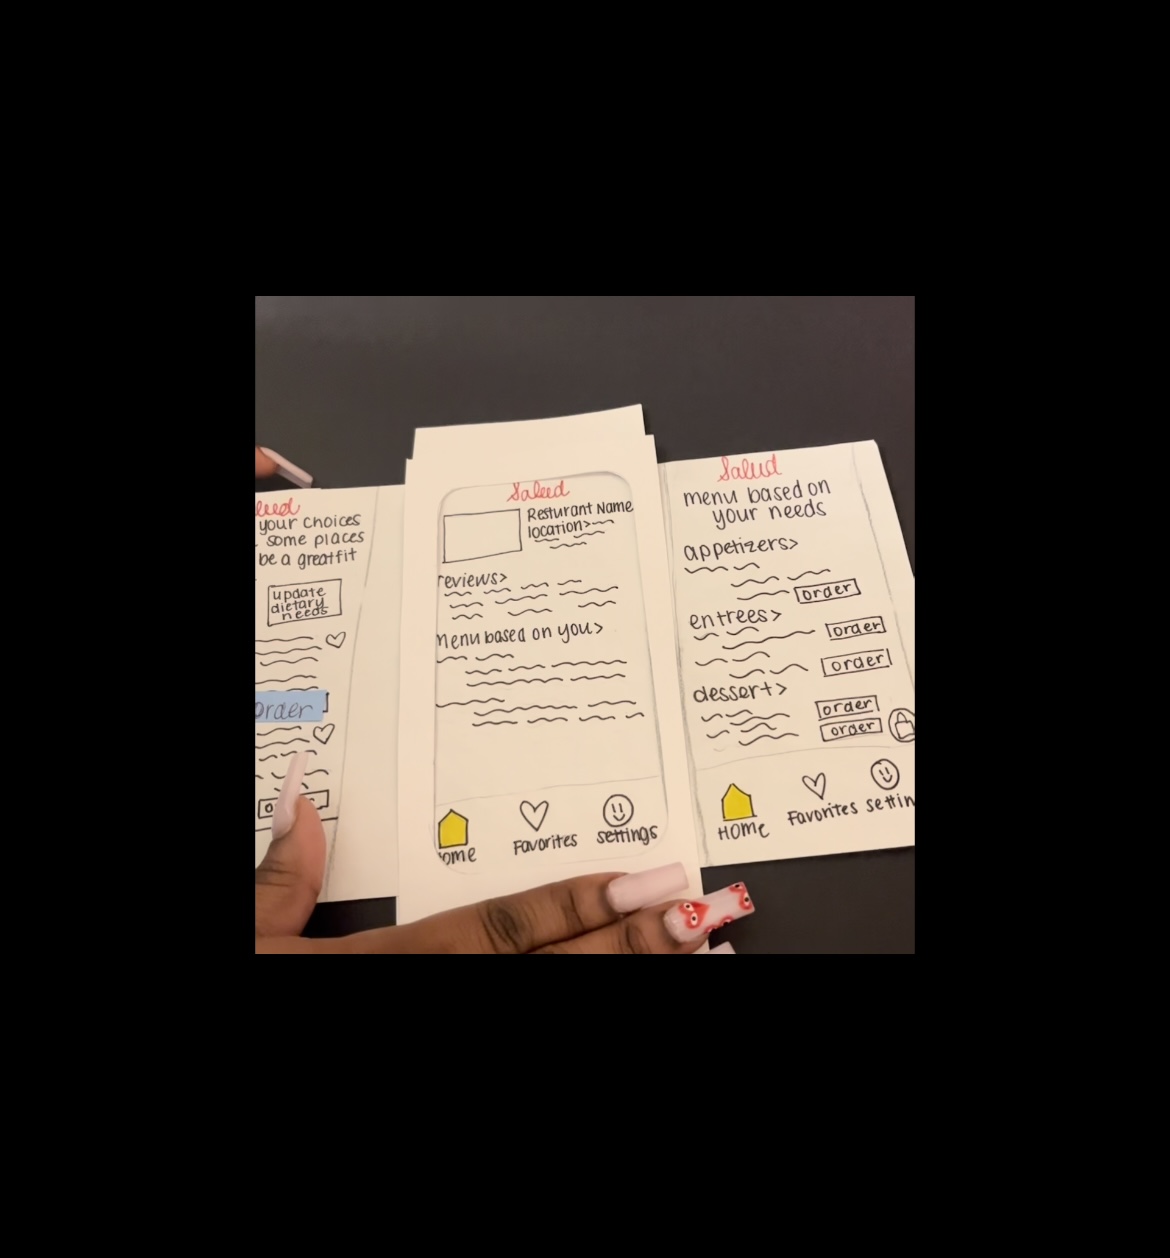 your choices
some places
be a great fit
update
dietary
needs
order
Salud
Resturant Name
location>
reviews>
menu based on you>
Favorites
settings
Salud
menu based on
your needs
appetizers>
order
entrees>
order
order
dessert>
order
order
HOME
Favorites